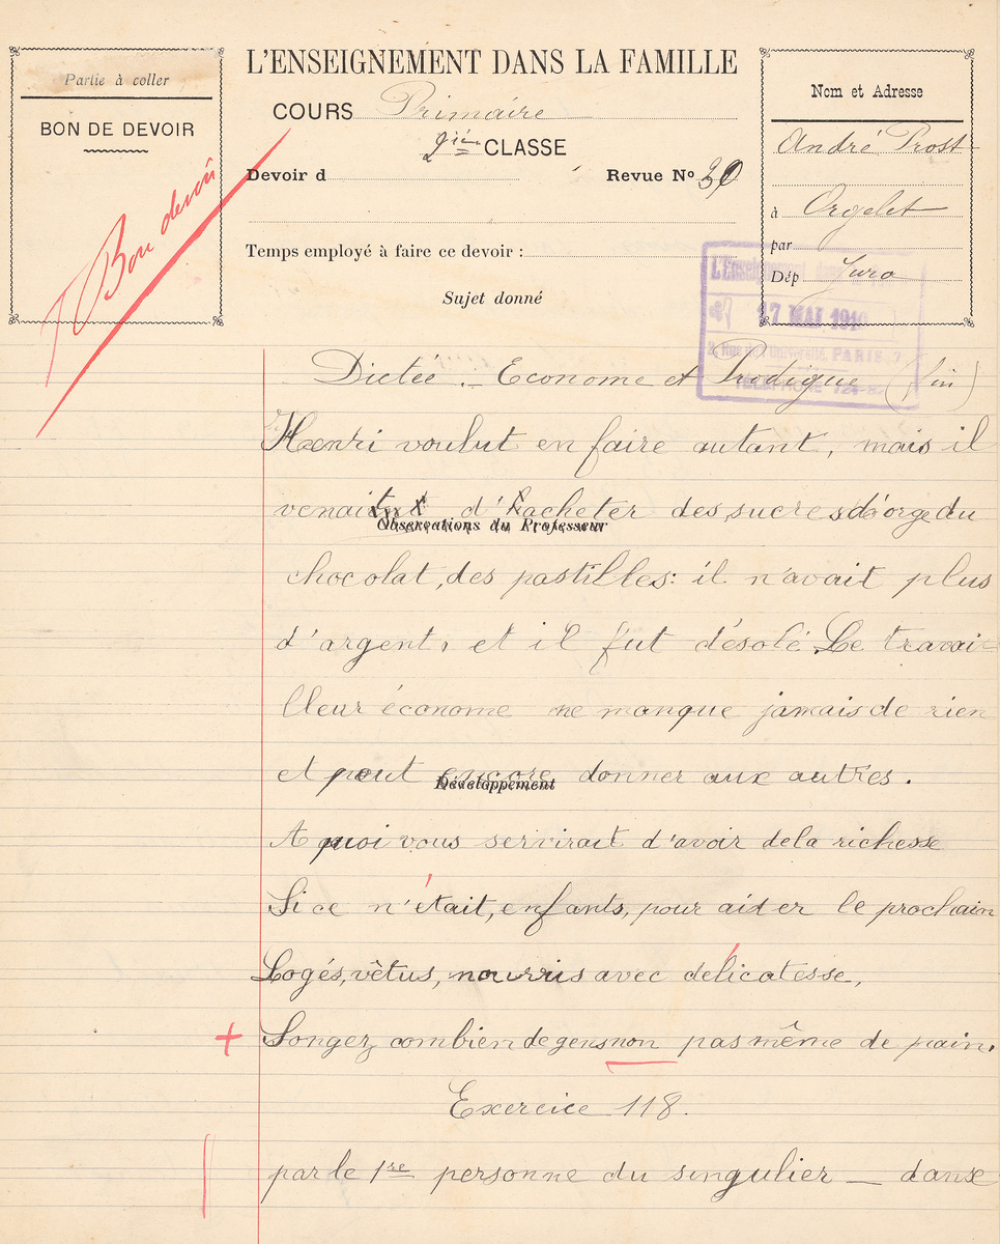 Partie à coller
BON DE DEVOIR
Bon devoir
L'ENSEIGNEMENT DANS LA FAMILLE
COURS Primaire
2ième CLASSE
Devoir d
Revue Nº 39
Temps employé à faire ce devoir :
Sujet donné
Nom et Adresse
André Prost
à Orgelet
par
Dép Jura
17 MAI 1910
PARIS. 7
Dictée . _ Econome et Prodigue (fin)
Henri voulut en faire autant, mais il
venait d'acheter des sucres d'orge du
Observations du Professeur
chocolat, des pastilles: il n'avait plus
d'argent, et il fut désolé. Le travai-
lleur économe ne manque jamais de rien
et peut encore donner aux autres.
Développement
A quoi vous servirait d'avoir de la richesse
Si ce n'était, enfants, pour aider le prochain
Logés, vêtus, nourris avec delicatesse,
+ Songez combien de gens non pas même de pain.
Exercice 118.
par le 1re personne du singulier _ danse